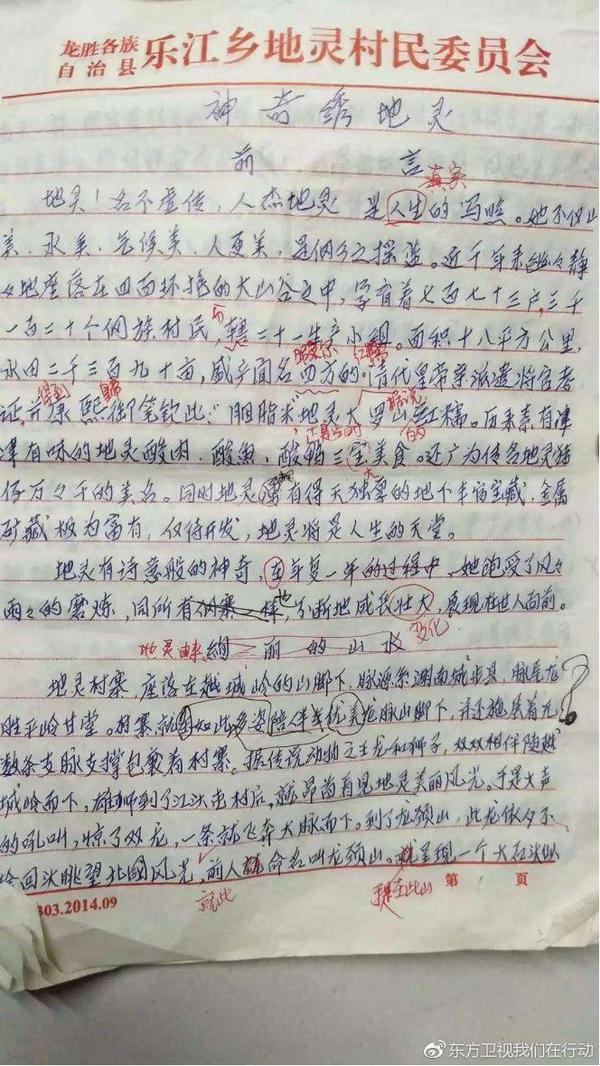 龙胜各族
自治县 乐江乡地灵村民委员会
神奇绣地灵
前 言
真实
地灵!名不虚传,人杰地灵 是人生的写照。她不仅山
美、水美、气候美、人更美,是侗乡之摇篮。近千年来幽々静
々地座落在四面环抱的大山谷之中,享有着七百七十三户,三千
一百二十个侗族村民,辖二十一生产小组。面积十八平方公里,
水田二千三百九十亩,威乎闻名四方的
清代皇帝亲派遣将官考
得到
证,并康熙御笔钦此:"胭脂米"地灵大罗山红糯。历来素有津
津有味的地灵酸肉、酸鱼、酸鸭三宝美食。还广为传名地灵
万々千的美名。同时地灵 有得天独厚的地下丰富宝藏,金属
矿藏极为富有,仅待开发,地灵将是人生的天堂。
地灵有诗意般的神奇,在年复一年的过程中,她饱受了风々
雨々的磨炼,同所有侗寨一样,不断地成长壮大,展现在世人面前。
变化
地灵 丽的山水
地灵村寨,座落在越城岭的山脚下,脉源系湖南城步县,脉尾龙
胜平岭甘堂。村寨就 如此多姿陪伴美优美龙脉山脚下,并还施展着无
数条支脉支撑包裹着村寨。据传说动物之王龙和狮子,双双相伴随越
城岭而下,雄狮到了江 村后,就昂首看见地灵美丽风光。于是大声
的吼叫,惊了双龙,一条就飞奔大脉而下。到了龙颈山,此龙依々不
舍回头眺望北国风光,前人 命名叫龙颈山。 呈现一个大石头似
就此
至此山
第 页
303.2014.09
东方卫视我们在行动